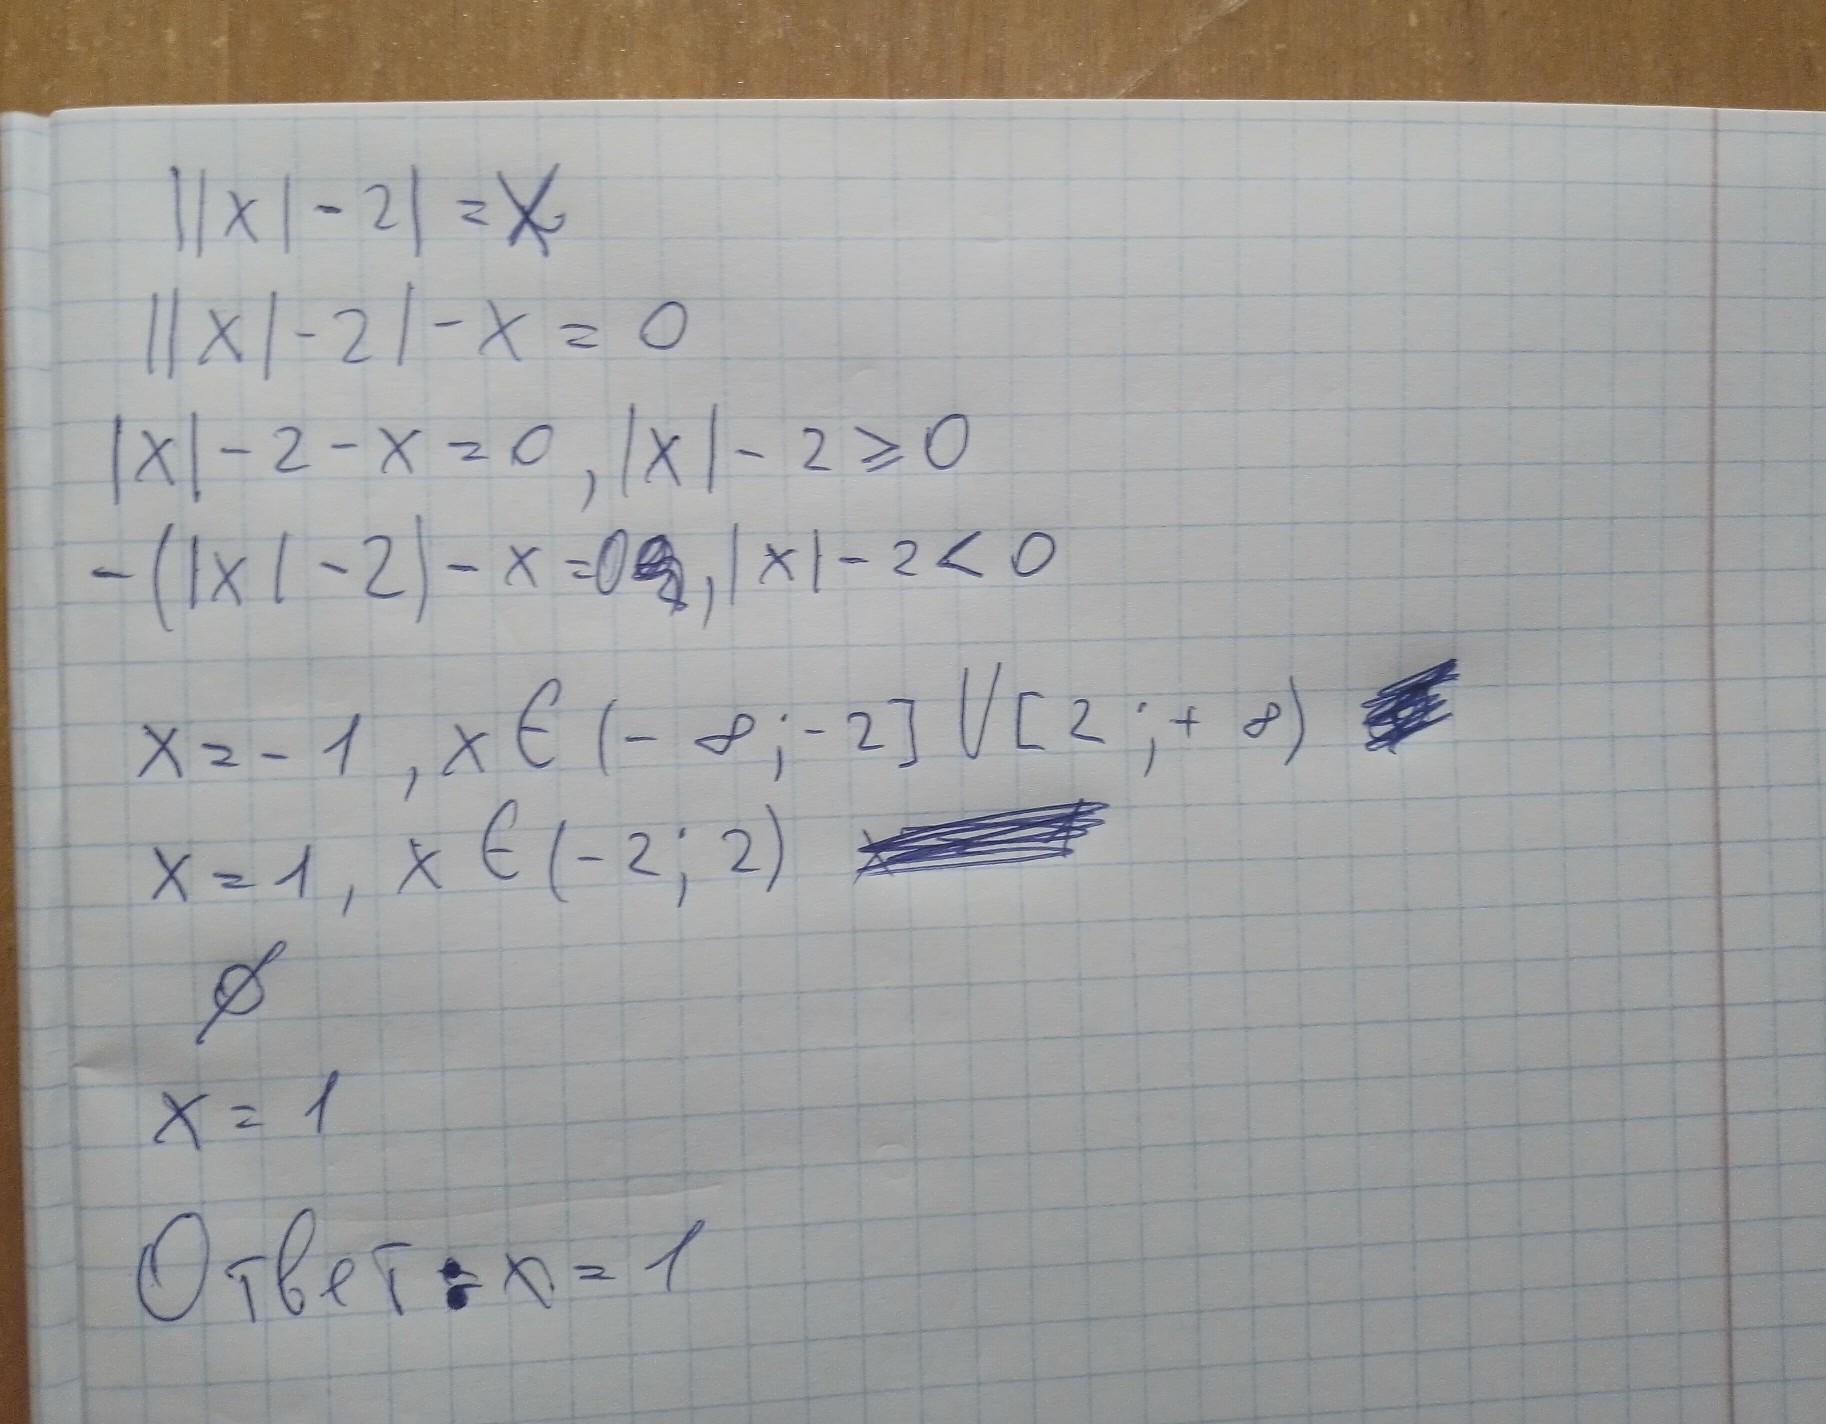 ||x|-2| = x
||x|-2|-x = 0
|x|-2-x=0, |x|-2⩾0
-(|x|-2)-x=0, |x|-2<0
x=-1, x∈(-∞;-2]∪[2;+∞)
x=1, x∈(-2;2)
∅
x=1
Ответ: x=1